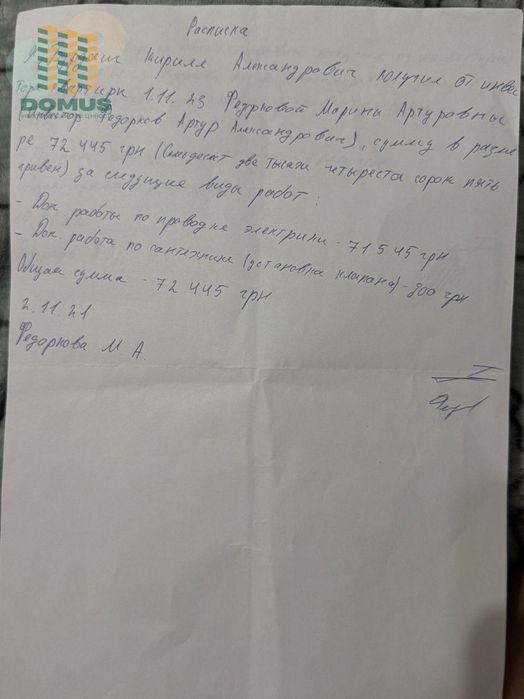 Расписка
Кирилл Александрович получил от инвес
тора квартиры 1.11.23 Федорковой Марины Артуровны
DOMUS
Федорков Артур Александрович), сумму в разме
ре 72 445 грн (Семьдесят две тысячи четыреста сорок пять
гривен) за следующие виды работ:
- Доп. работы по проводке электрики - 71 545 грн
- Доп. работа по сантехнике (установка клапана) - 900 грн
Общая сумма - 72 445 грн
2.11.21
Федоркова М А.